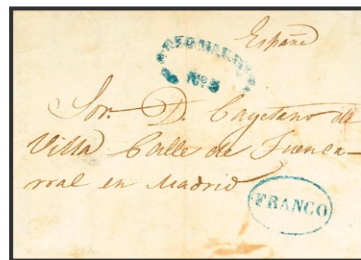 España
Nº 3
Sor. D. Cayetano de
Villa Calle de Fuenca-
rral en Madrid
FRANCO